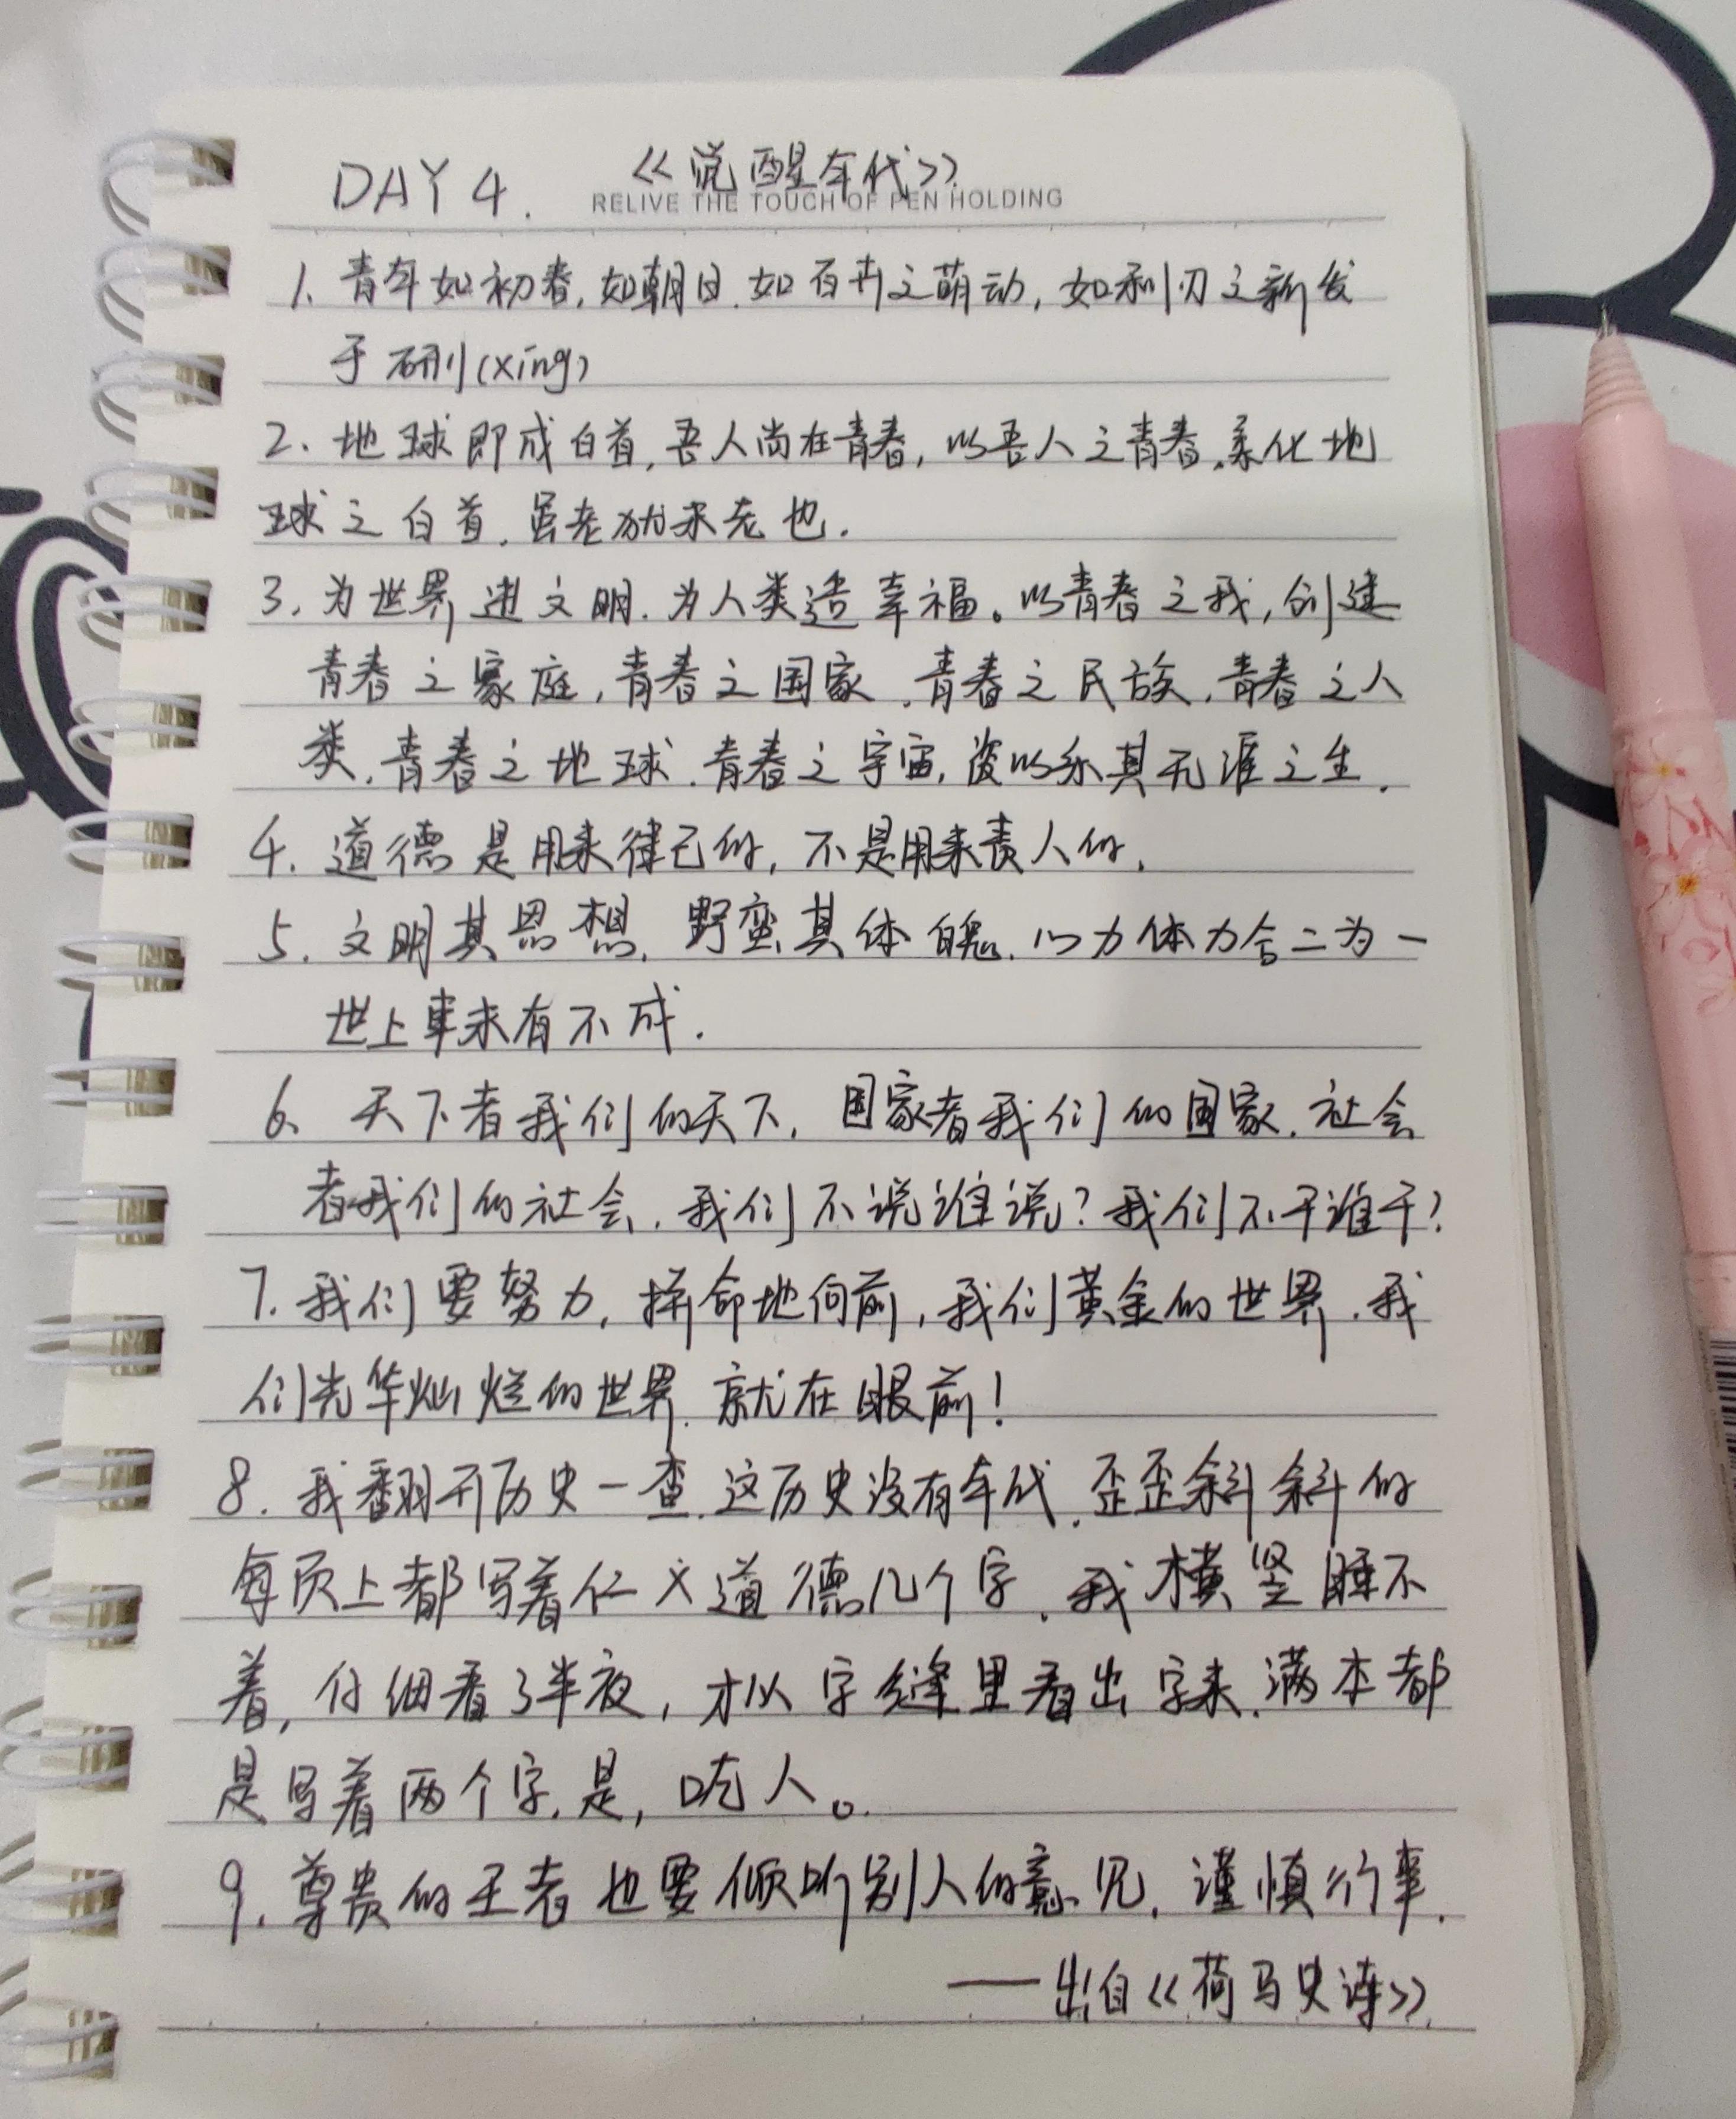 DAY 4. 《觉醒年代》
RELIVE THE TOUCH OF PEN HOLDING
1、青年如初春,如朝日.如百卉之萌动,如利刃之新发
于硎(xing)
2、地球即成白首,吾人尚在青春,以吾人之青春,柔化地
球之白首,虽老犹未老也.
3、为世界进文明.为人类造幸福。以青春之我,创建
青春之家庭,青春之国家,青春之民族,青春之人
类,青春之地球.青春之宇宙,资以乐其无涯之生.
4、道德是用来律己的,不是用来责人的.
5、文明其思想,野蛮其体魄.心力体力合二为一
世上事未有不成.
6、天下者我们的天下,国家者我们的国家,社会
者我们的社会,我们不说谁说?我们不干谁干?
7、我们要努力,拼命地向前,我们黄金的世界.我
们光华灿烂的世界.就在眼前!
8、我翻开历史一查.这历史没有年代.歪歪斜斜的
每页上都写着仁义道德几个字.我横竖睡不
着,仔细看了半夜,才从字缝里看出字来.满本都
是写着两个字.是,吃人。
9、尊贵的王者也要倾听别人的意见,谨慎行事.
——出自《荷马史诗》